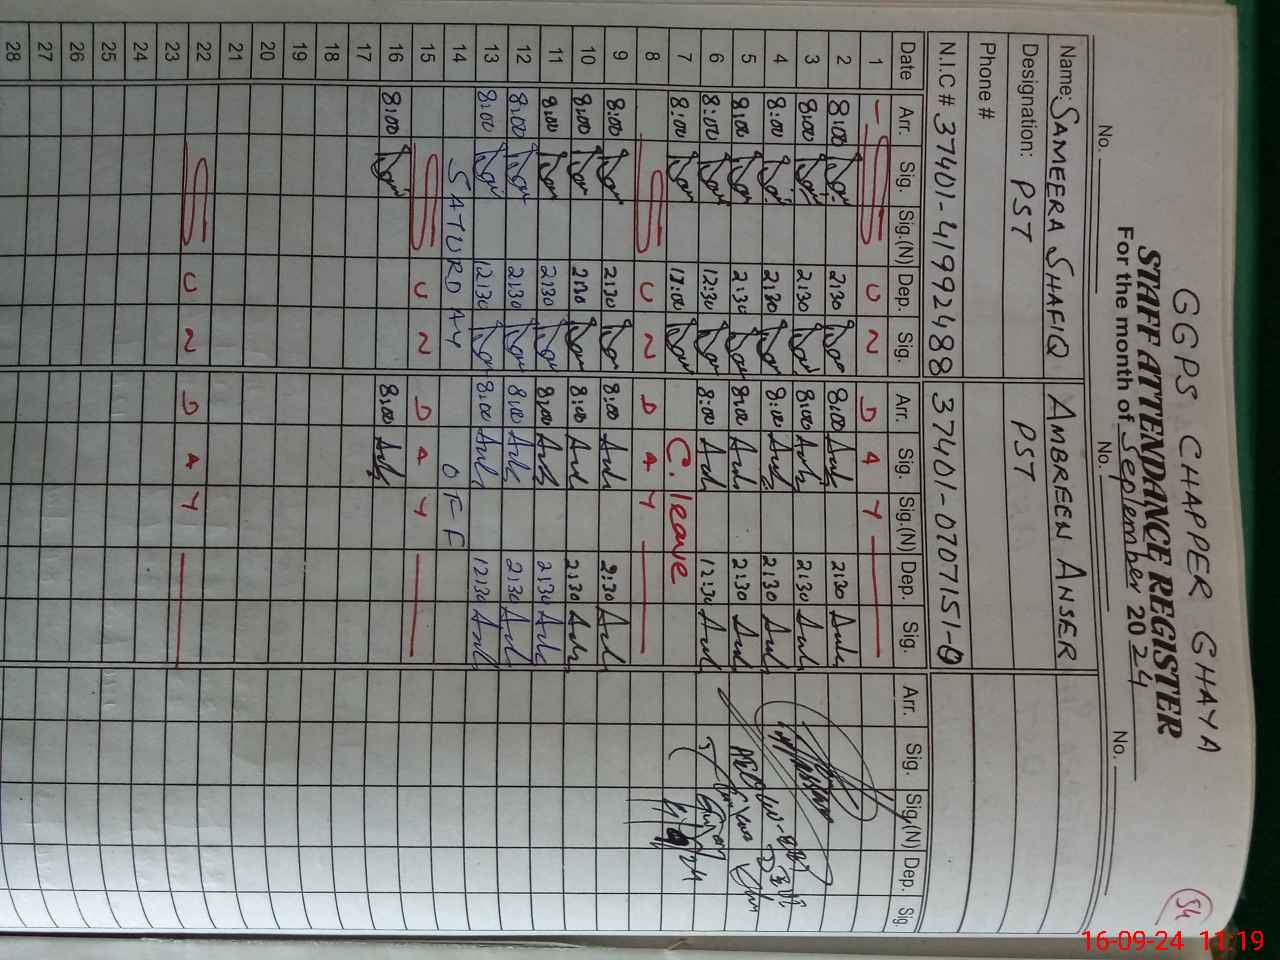 54
GGPS CHAPPER GHAYA
STAFF ATTENDANCE REGISTER
For the month of September 2024
No. No. No.
Name: SAMEERA SHAFIQ AMBREEN ANSER
Designation: PST PST
Phone #
N.I.C # 37401-4199248-8 37401-0707151-0
Date Arr. Sig. Sig.(N) Dep. Sig. Arr. Sig. Sig.(N) Dep. Sig. Arr. Sig. Sig.(N) Dep. Sig
1 S U N D A Y
2 8:00 2:30 8:00 2:30
3 8:00 2:30 8:00 2:30
4 8:00 2:30 8:00 2:30
5 8:00 2:30 8:00 2:30
6 8:00 12:30 8:00 12:30
7 8:00 12:00 C. leave
8 S U N D A Y
9 8:00 2:30 8:00 2:30
10 8:00 2:30 8:00 2:30
11 8:00 2:30 8:00 2:30
12 8:00 2:30 8:00 2:30
13 8:00 12:30 8:00 12:30
14 SATURDAY OFF
15 S U N D A Y
16 8:00 8:00
17
18
19
20
21
22 S U N D A Y
23
24
25
26
27
28
16-09-24 11:19